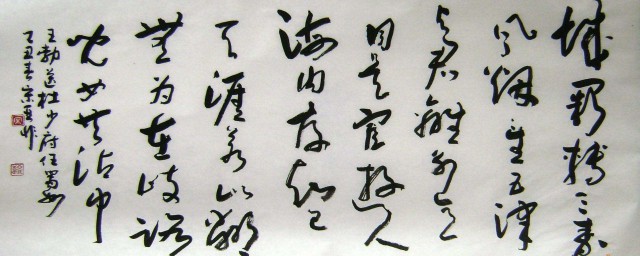 城闕輔三秦
风烟望五津
与君離别意
同是宦游人
海内存知己
天涯若比鄰
無为在歧路
兒女共沾巾
王勃送杜少府任蜀州
丁丑春